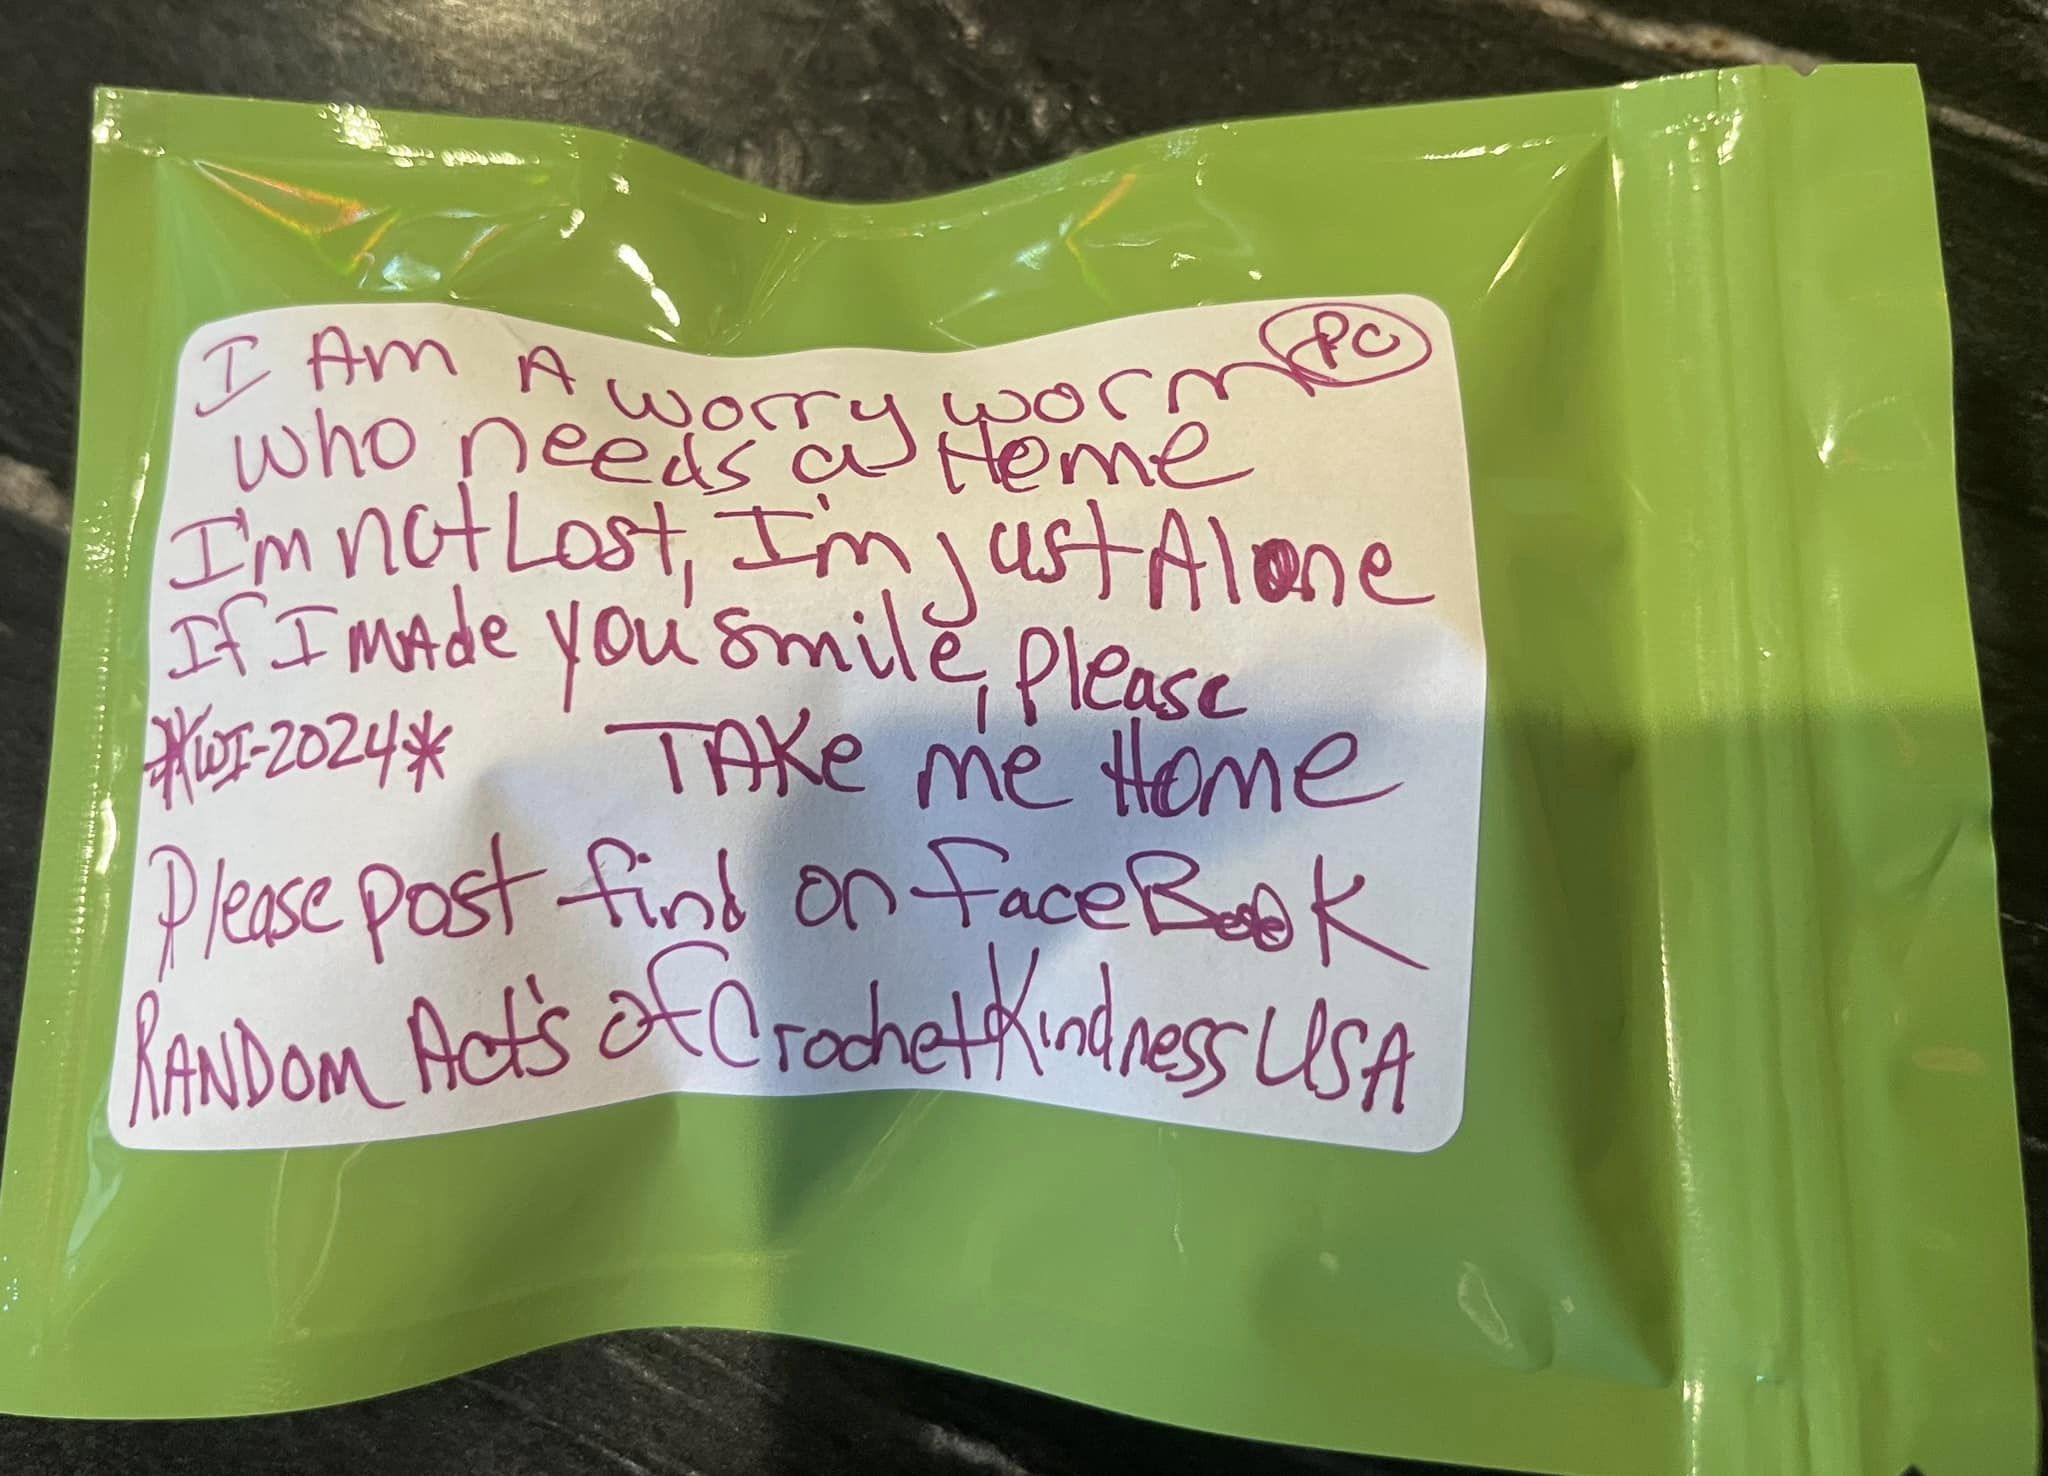 I Am A worry worm PC
who needs a Home
I'm not Lost, I'm just Alone
If I made you smile, please
*WI-2024* TAKe me Home
Please post find on FaceBook
RANDOM Act's of Crochet Kindness USA